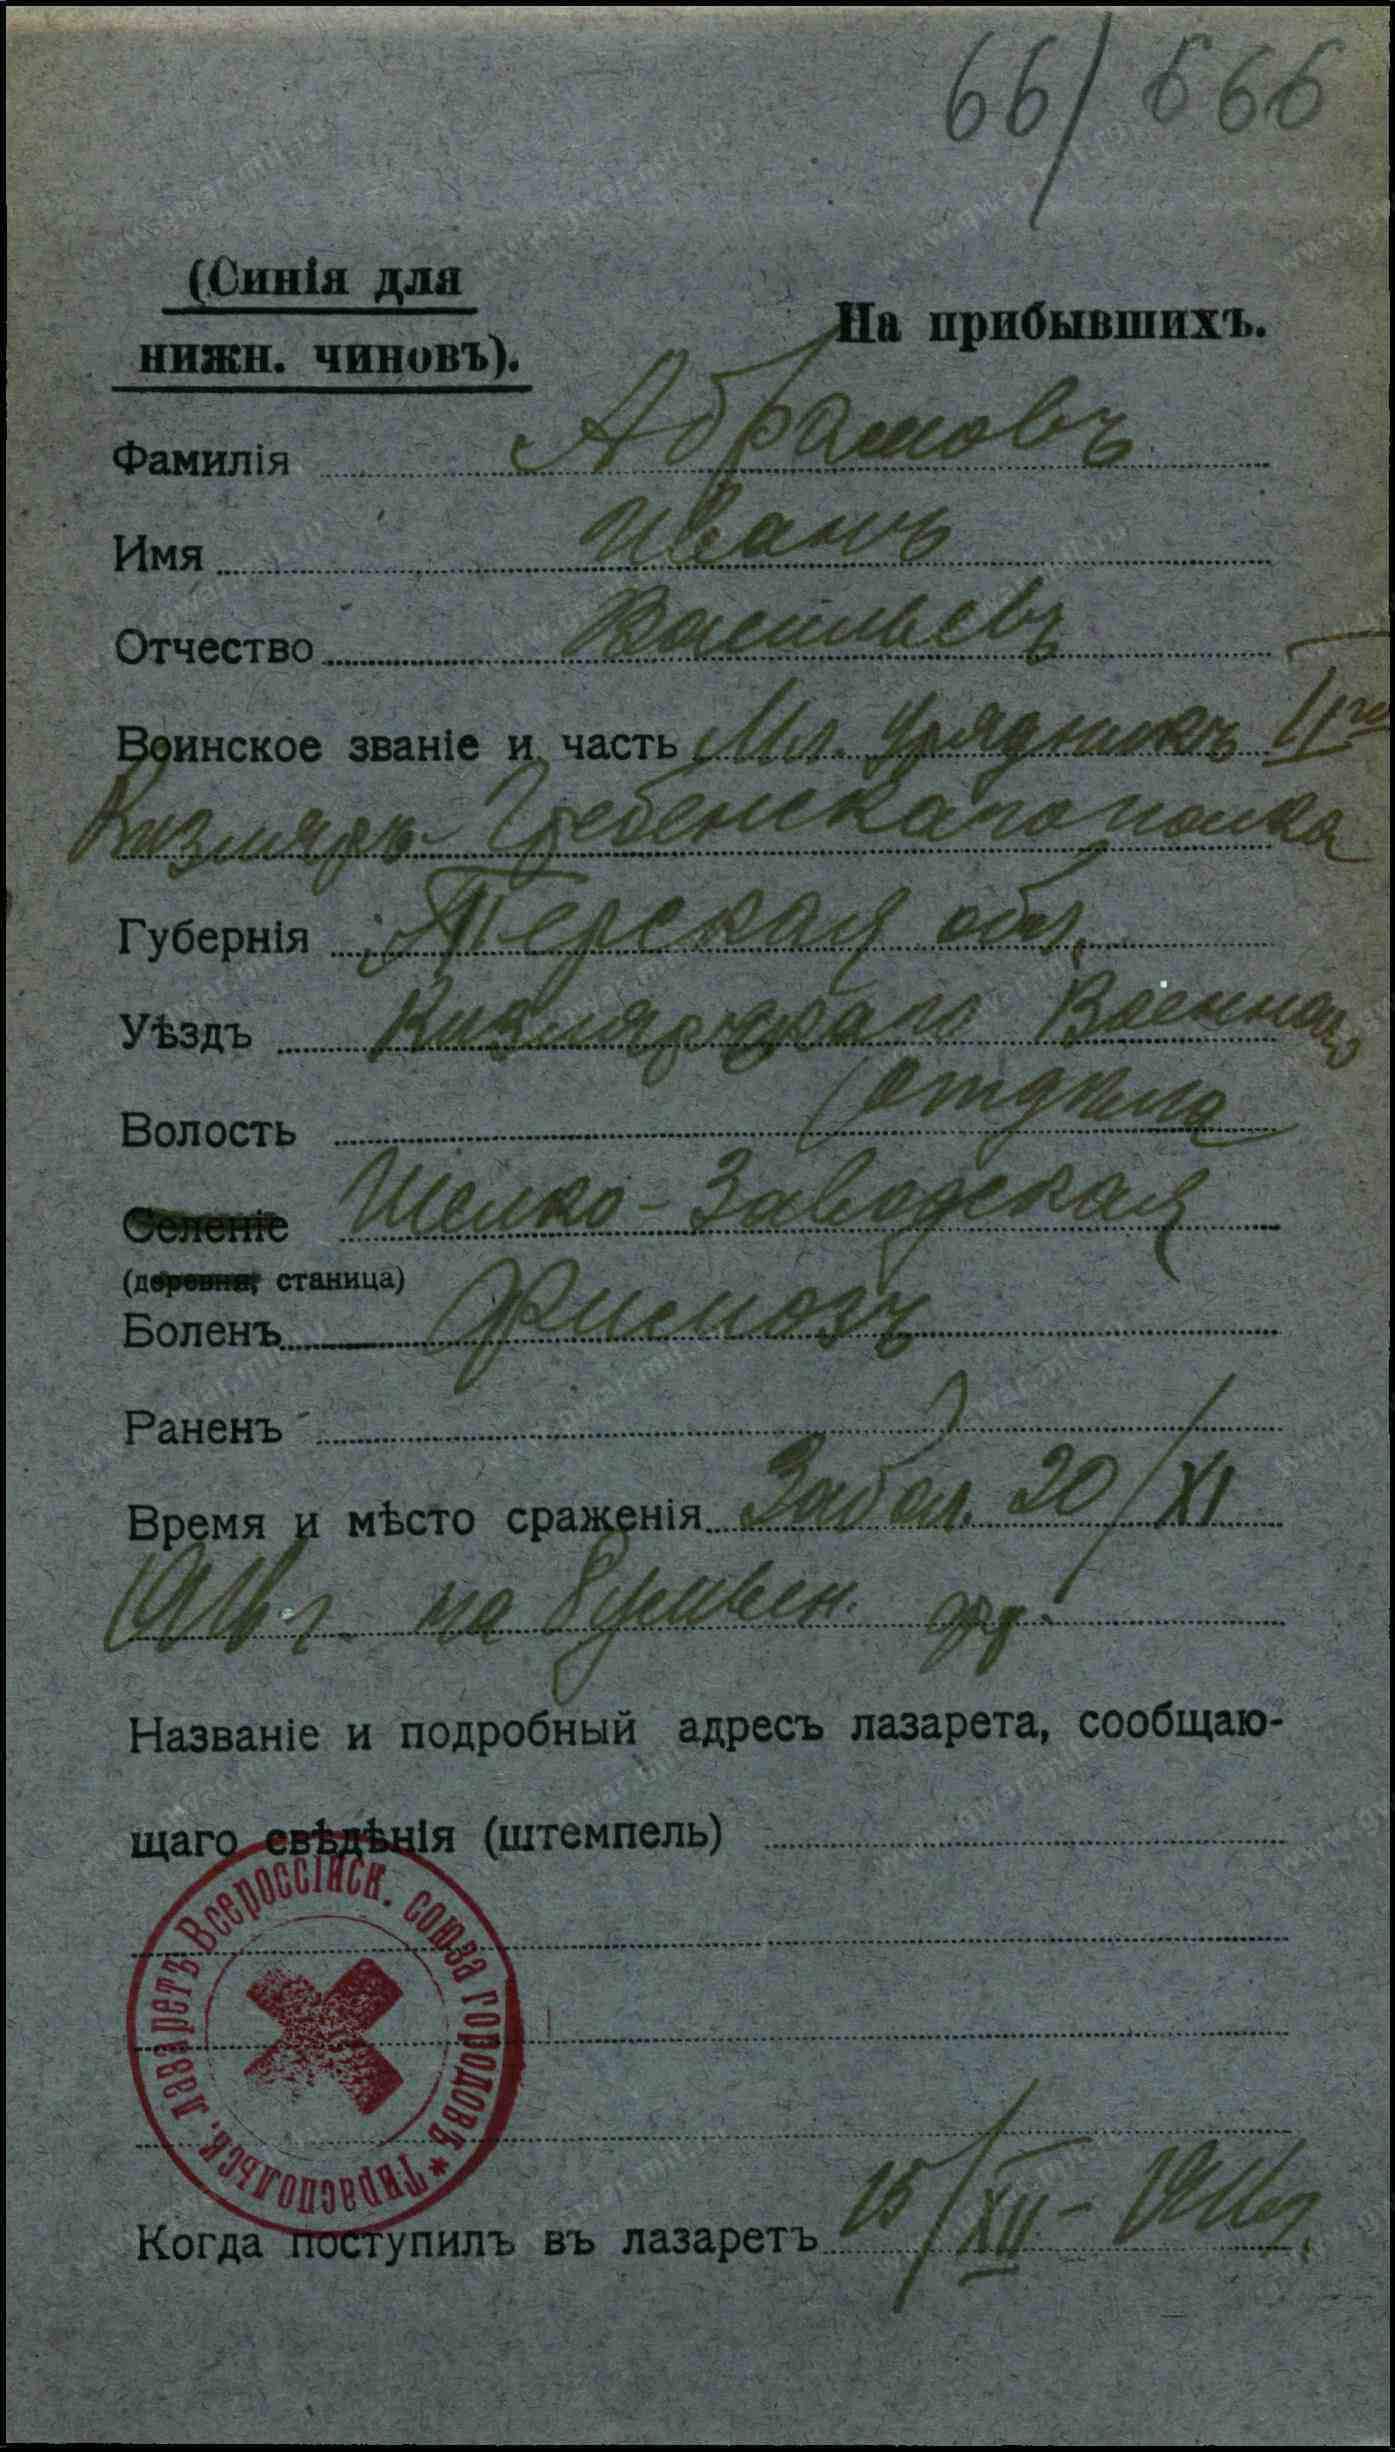 66/666
(Синія для
нижн. чиновъ).
На прибывшихъ.
Фамилія Абрамовъ
Имя Иванъ
Отчество Васильевъ
Воинское званіе и часть Мл. Урядникъ II го
Кизляръ-Гребенскаго полка
Губернія Терская обл.
Уѣздъ Кизлярскаго Военнаго
Волость отдѣла
Селеніе Шелко-Заводская
(деревня, станица)
Боленъ Фимозъ
Раненъ
Время и мѣсто сраженія Забол. 20/XI
1916 г. на Румын. фр.
Названіе и подробный адресъ лазарета, сообщаю-
щаго свѣдѣнія (штемпель)
Тираспольск. лазаретъ Всероссійск. союза городовъ *
Когда поступилъ въ лазаретъ 15/XII - 1916 г.
www.gwar.mil.ru